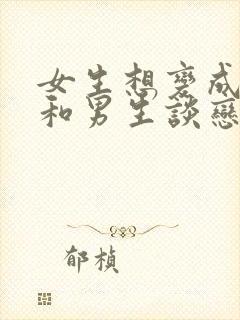 女生想變成
和男生談戀
郁楨